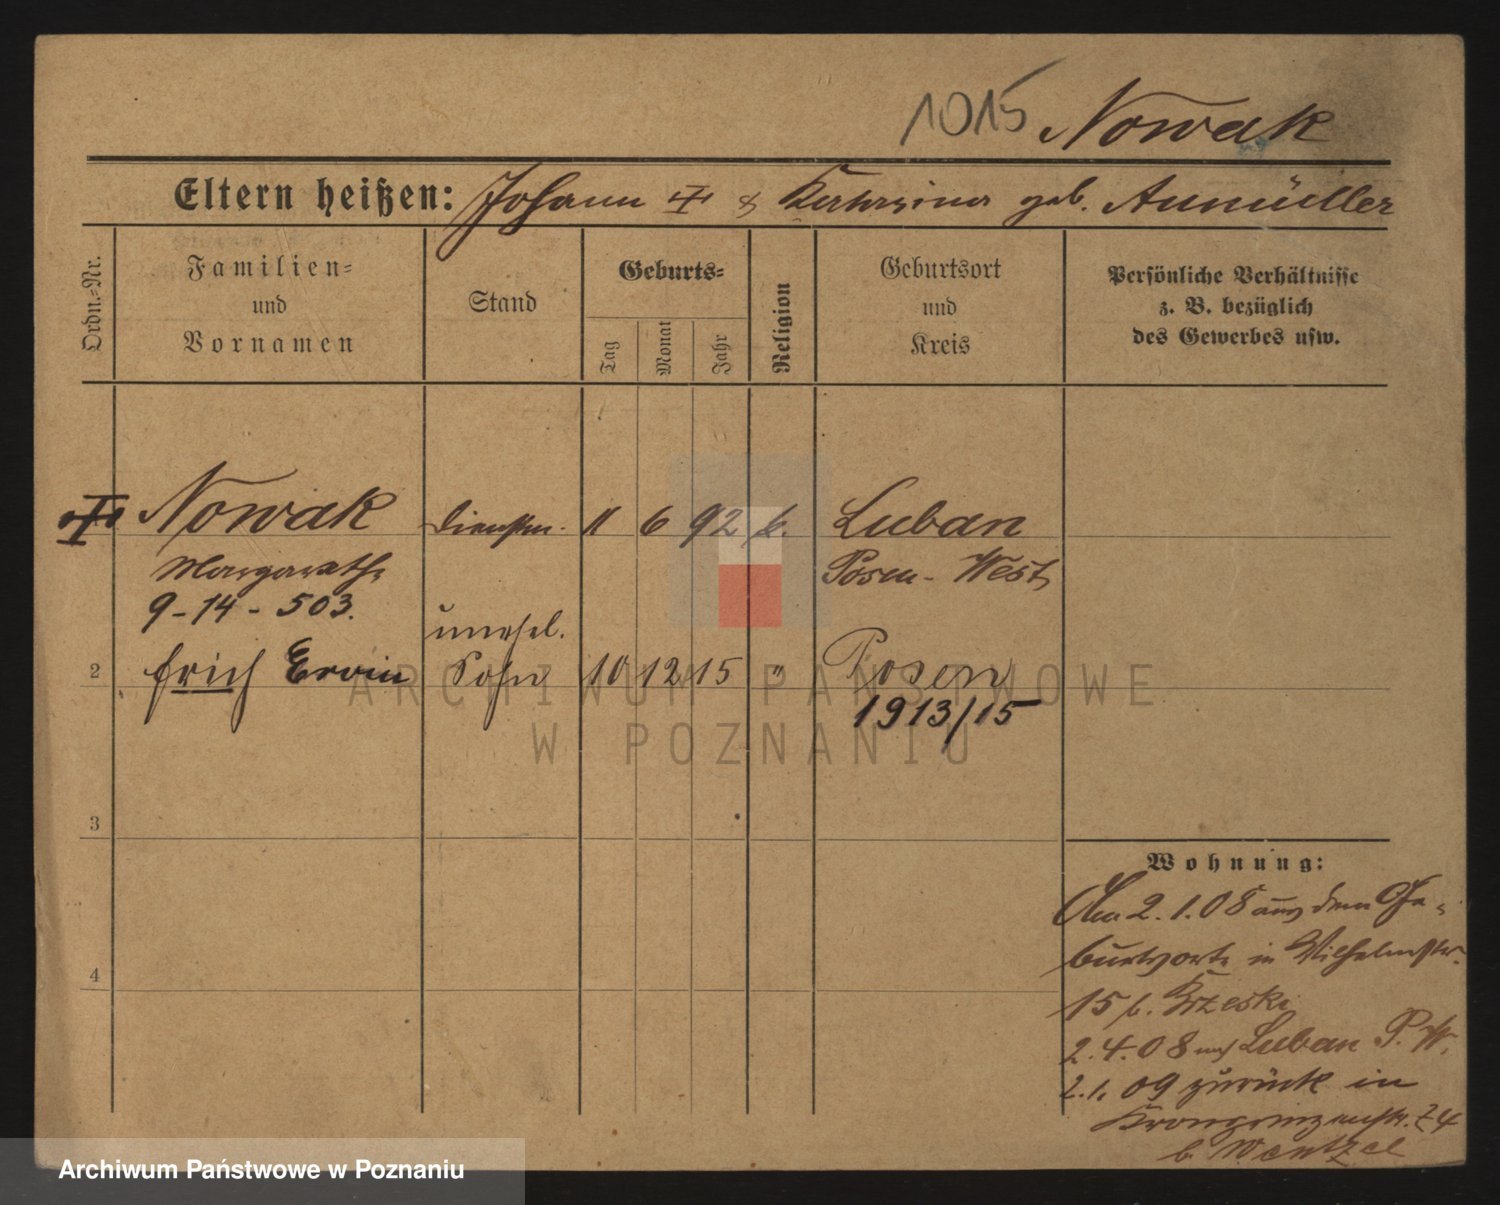 1015 Nowak
Eltern heißen: Johann & Katarzina geb. Aumüller
Ordn.-Nr.
Familien-
und
Vornamen
Stand
Geburts-
Tag
Monat
Jahr
Religion
Geburtsort
und
Kreis
Persönliche Verhältnisse
z. B. bezüglich
des Gewerbes usw.
Nowak 11 6 92 k. Luban
Margarethe Posen-West
9-14-503.
unehel.
2 Erich Erwin Sohn 10 12 15 " Posen
1913/15
3
4
Wohnung:
Am 2.1.08 aus dem Ge-
burtsorte in Wilhelmstr.
15 b. Krzeski
2.4.08 nach Luban P. W.
2.1.09 zurück in
Kronprinzenstr. 74
b. Wentzel
ARCHIWUM PAŃSTWOWE
W POZNANIU
Archiwum Państwowe w Poznaniu